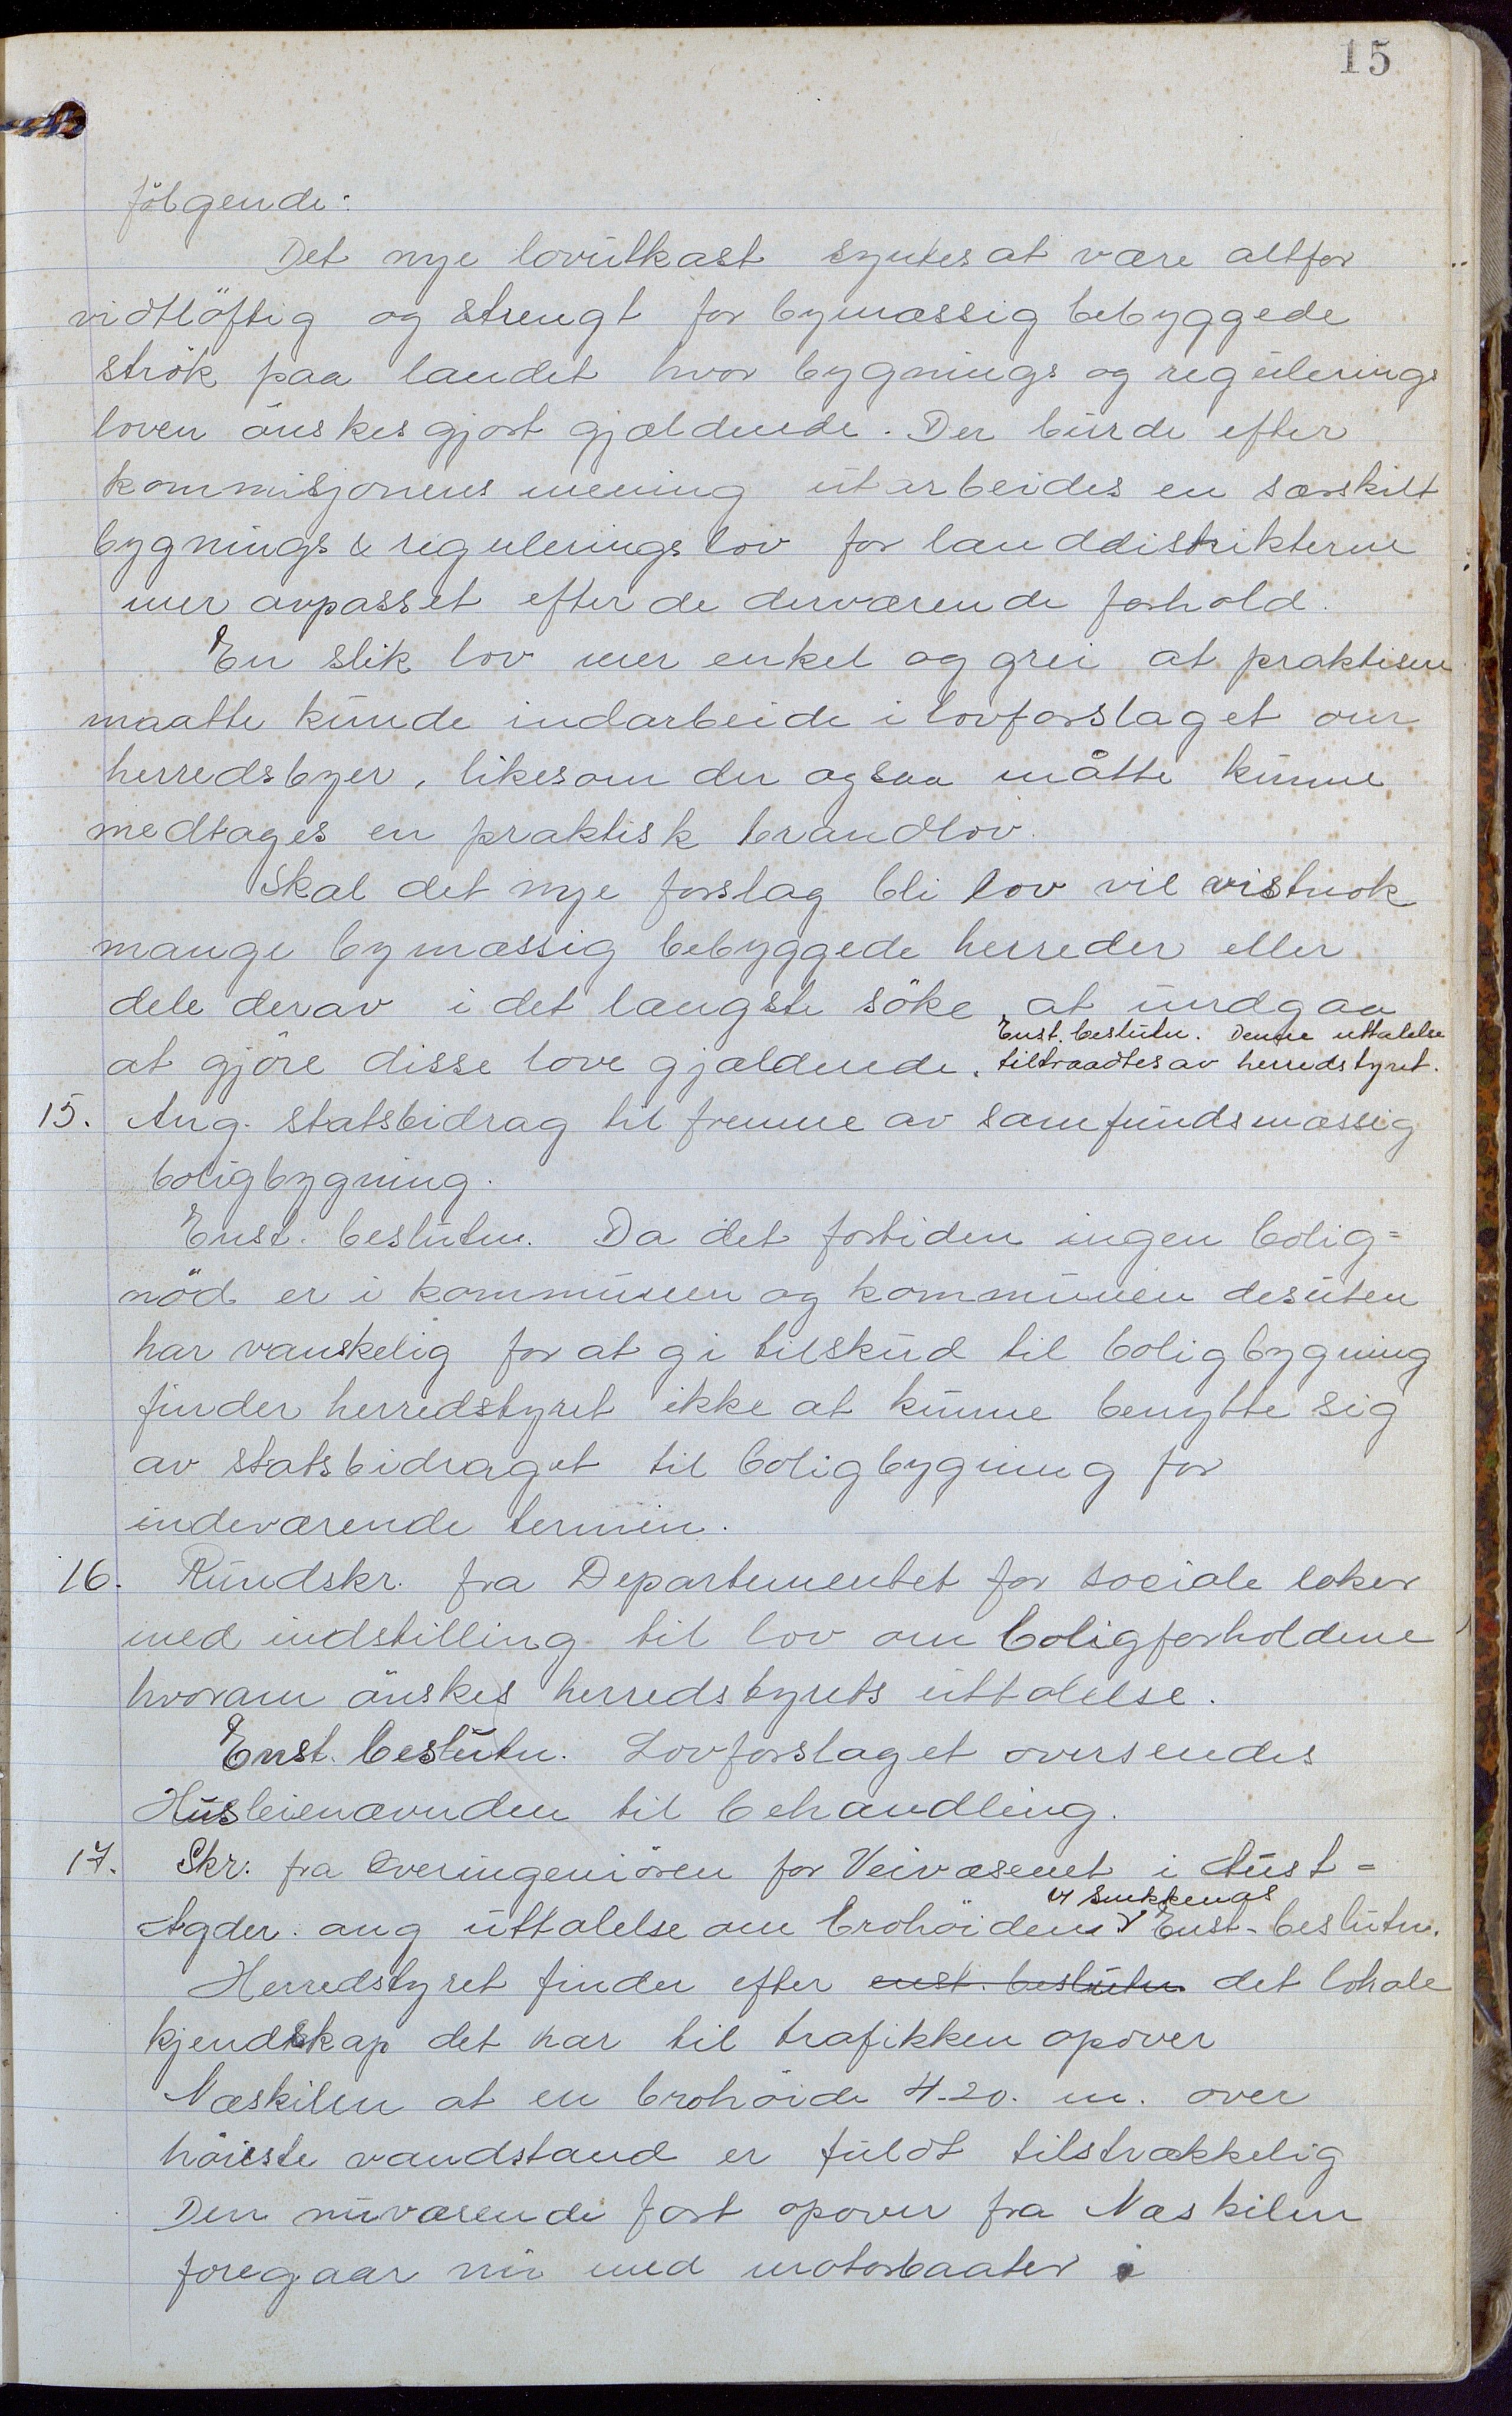 15
følgende:
Det nye lovutkast syntes at være altfor
vidtløftig og strengt for bymæssig bebyggede
strøk paa landet hvor bygnings og regulerings
loven ønskes gjort gjældende. Der burde efter
kommisjonens mening utarbeides en særskilt
bygnings & regulerings lov for landdistrikterne
mer avpasset efter de derværende forhold.
En slik lov mer enkel og grei at praktisere
maatte kunde indarbeide i lovforslaget om
herredsbyer, likesom der ogsaa måtte kunne
medtages en praktisk brandlov.
Skal det nye forslag bli lov vil vistnok
mange bymæssig bebyggede herreder eller
dele derav i det længste søke at undgaa
at gjøre disse love gjældende. Enst. beslutn. Denne uttalelse
tiltraadtes av herredstyret.
15. Ang. statsbidrag til fremme av samfundsmæssig
boligbygning.
Enst. beslutn. Da det fortiden ingen bolig=
nød er i kommunen og kommunen desuten
har vanskelig for at gi tilskud til boligbygning
finder herredstyret ikke at kunne benytte sig
av statsbidraget til boligbygning for
indeværende termin.
16. Rundskr. fra Departementet for sociale saker
med indstilling til lov om boligforholdene
hvorom ønskes herredstyrets uttalelse.
Enst. beslutn. Lovforslaget oversendes
Husleienævnden til behandling.
17. Skr. fra Overingeniøren for Veivæsenet i Aust=
Agder ang uttalelse om brohøiden v Smkkenes Enst- beslutn.
Herredstyret finder efter enst. beslutn det lokale
kjendskap det har til trafikken opover
Næskilen at en brohøide 4-20. m. over
høieste vandstand er fuldt tilstrækkelig
Den nuværende fart opover fra Næskilen
foregaar nu med motorbaater i